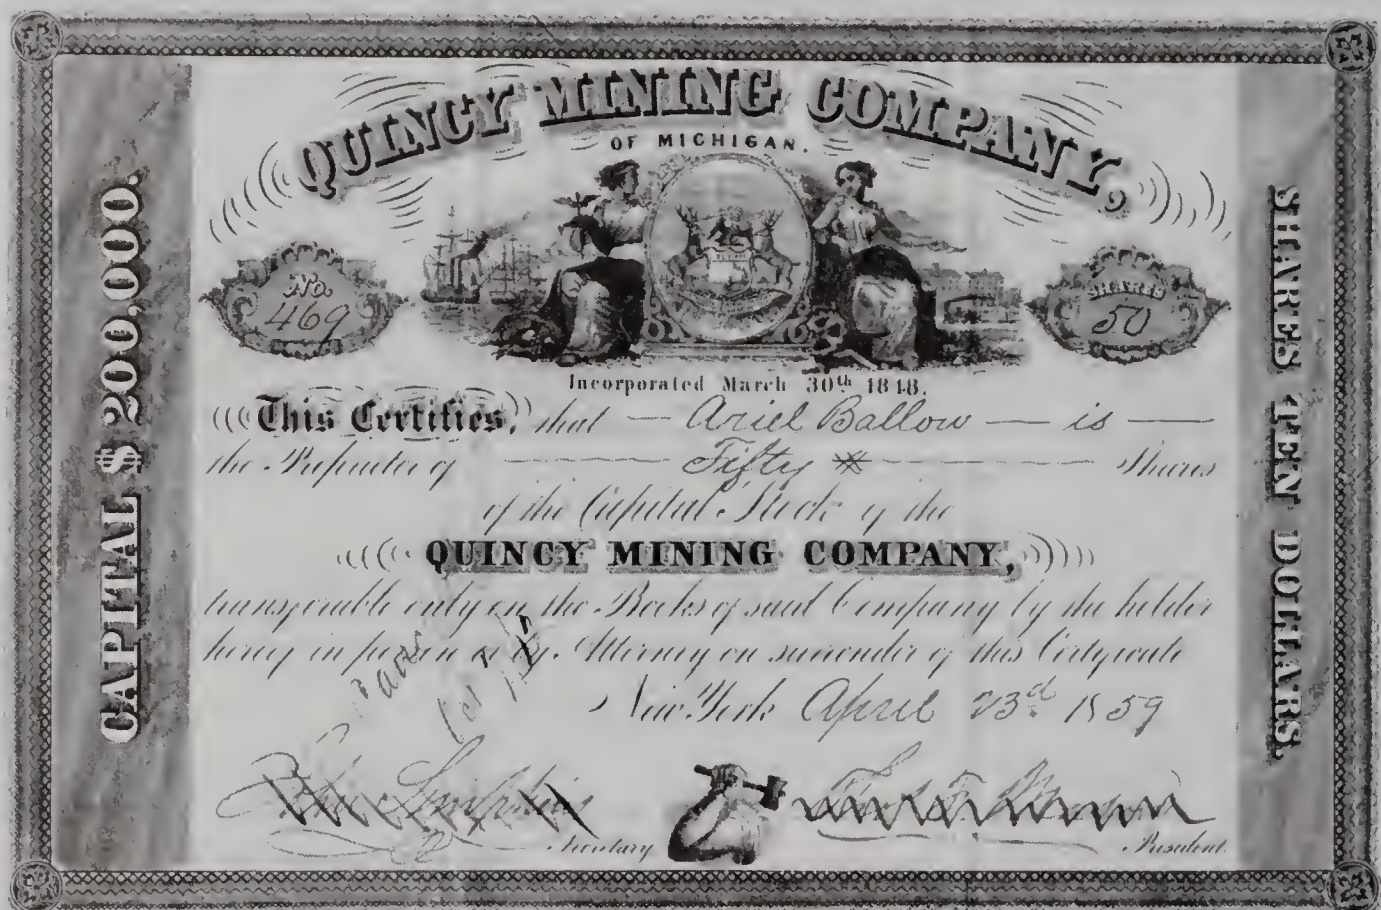 QUINCY MINING COMPANY,
OF MICHIGAN.
CAPITAL $200,000.
SHARES TEN DOLLARS.
No.
469
SHARES
50
Incorporated March 30th 1848.
This Certifies, that — Ariel Ballow — is —
the Proprietor of — Fifty — Shares
of the Capital Stock of the
QUINCY MINING COMPANY,
transferable only on the Books of said Company by the holder
hereof in person or by Attorney on surrender of this Certificate
New York April 23d 1859
Secretary
President